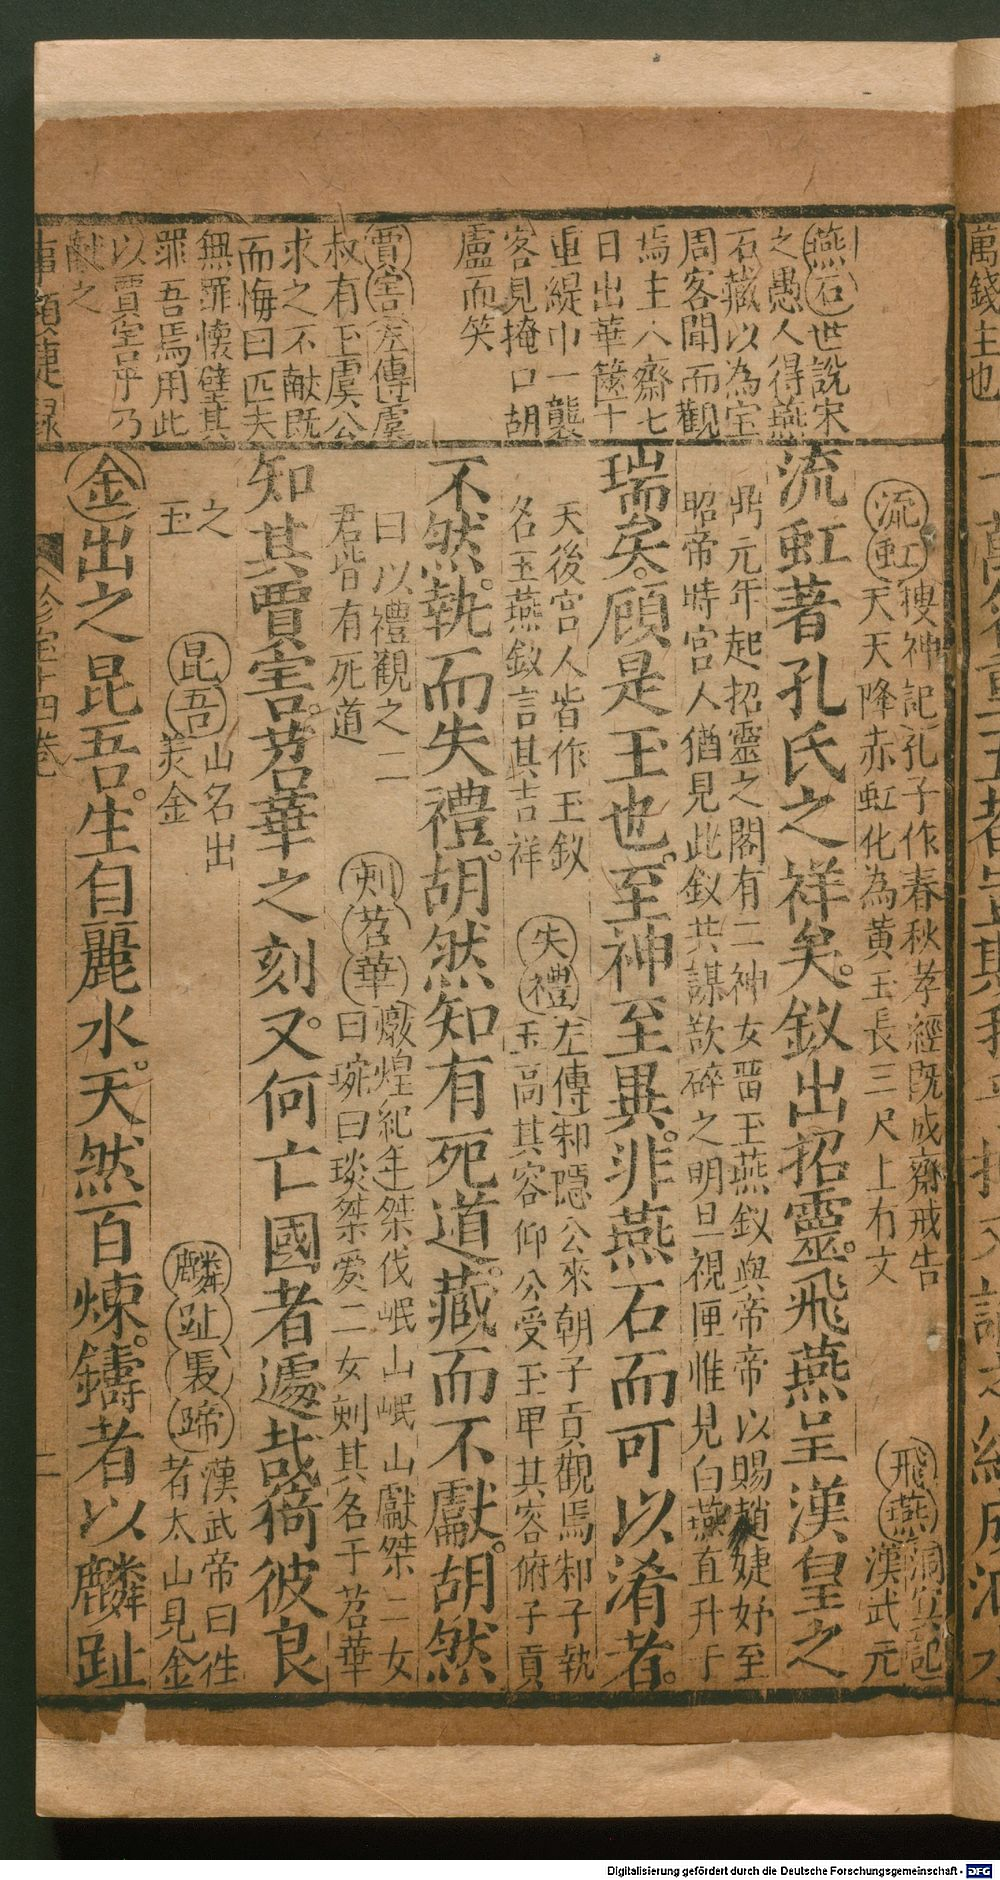 燕石世說宋
之愚人得燕
石藏以為宝
周客聞而觀
焉主人齋七
日出華篋十
重緹巾一襲
客見掩口胡
盧而笑
賈害左傳虞
叔有玉虞公
求之不献既
而悔曰匹夫
無罪懷璧其
罪吾焉用此
以賈害乎乃
献之
流虹搜神記孔子作春秋孝經既成齋戒告
天天降赤虹化為黃玉長三尺上有文
飛燕洞冥記
漢武元
流虹著孔氏之祥矣。釵出招靈。飛燕呈漢皇之
鼎元年起招靈之閣有二神女畱玉燕釵與帝帝以賜趙婕妤至
昭帝時宮人猶見此釵共謀欲碎之明旦視匣惟見白燕直升于
瑞矣。顧是玉也。至神至異。非燕石而可以淆者。
天後宮人皆作玉釵
名玉燕釵言其吉祥
失禮左傳邾隱公來朝子貢觀焉邾子執
玉高其容仰公受玉卑其容俯子貢
不然。執而失禮。胡然知有死道。藏而不獻。胡然
曰以禮觀之二
君皆有死道
刻苕華燉煌紀年桀伐岷山岷山獻桀二女
曰琬曰琰桀爱二女刻其名于苕華
知其賈害。苕華之刻。又何亡國者遽哉。徜彼良
之
玉
昆吾山名出
美金
麟趾裹蹄漢武帝曰徃
者太山見金
金出之昆吾。生自麗水。天然百煉。鑄者以麟趾
事類捷録
珍宝十四卷
二
萬錢主也
Digitalisierung gefördert durch die Deutsche Forschungsgemeinschaft - DFG